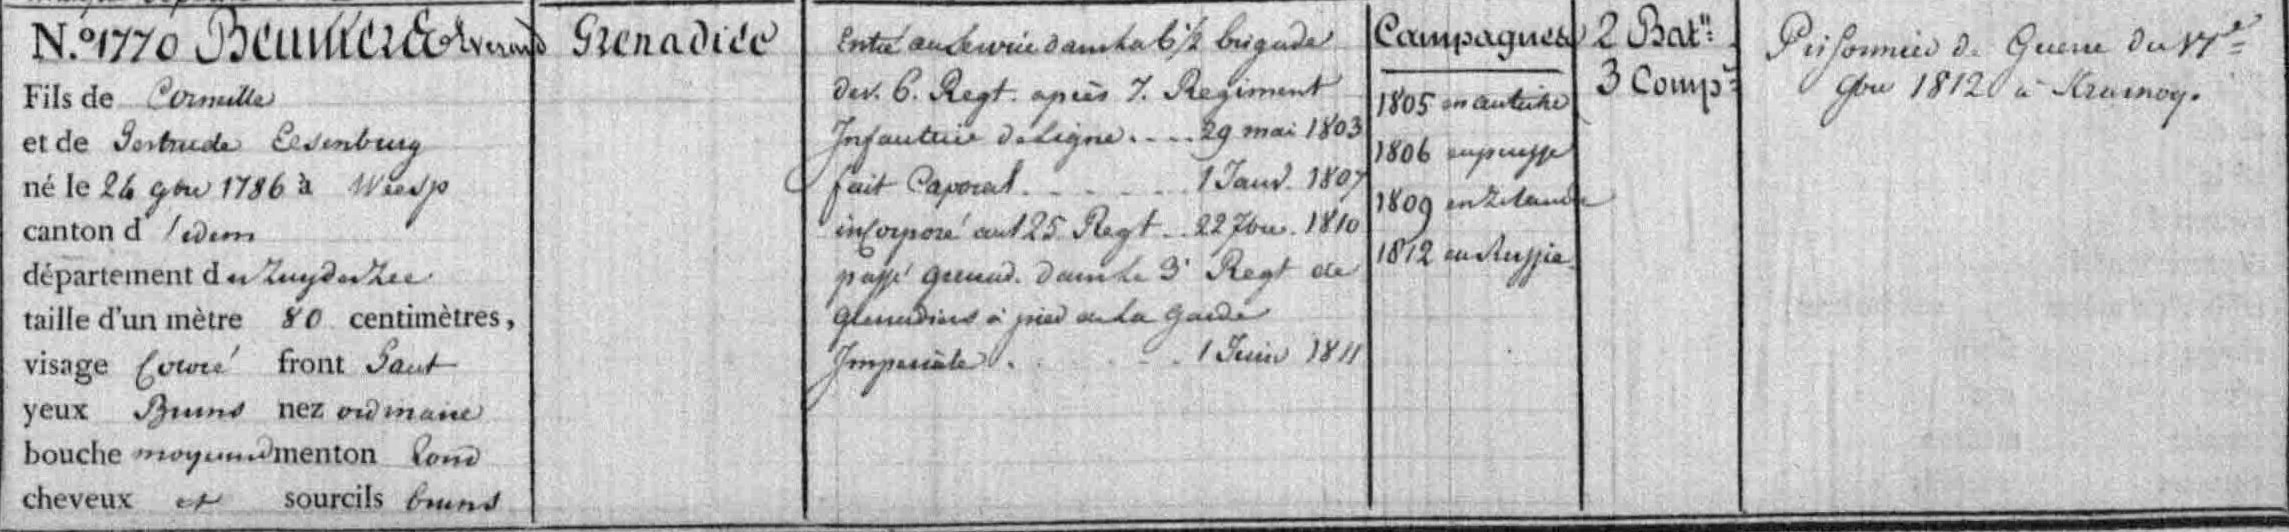 N.º 1770 Beumer Everard
Fils de Cornille
et de Gertrude Eesenburg
né le 24 9bre 1786 à Weesp
canton d'idem
département du Zuyderzee
taille d'un mètre 80 centimètres,
visage Coloré front haut
yeux Bruns nez ordinaire
bouche moyenne menton rond
cheveux et sourcils bruns
Grenadier
Entré au Service dans la 6 1/2 brigade
dev. 6. Regt. après 7. Regiment
Infanterie de Ligne .... 29 mai 1803
fait Caporal ..... 1 Janv. 1807
incorporé au 125 Regt .. 22 7bre. 1810
passé grenad. dans le 3e Regt de
grenadiers à pied de la garde
Imperiale ..... 1 Juin 1811
Campagnes
1805 en autriche
1806 en prusse
1809 en Zelande
1812 en Russie
2 Batn:
3 Comp:
Prisonnier de Guerre du 17e
9bre 1812 à Krasnoy.